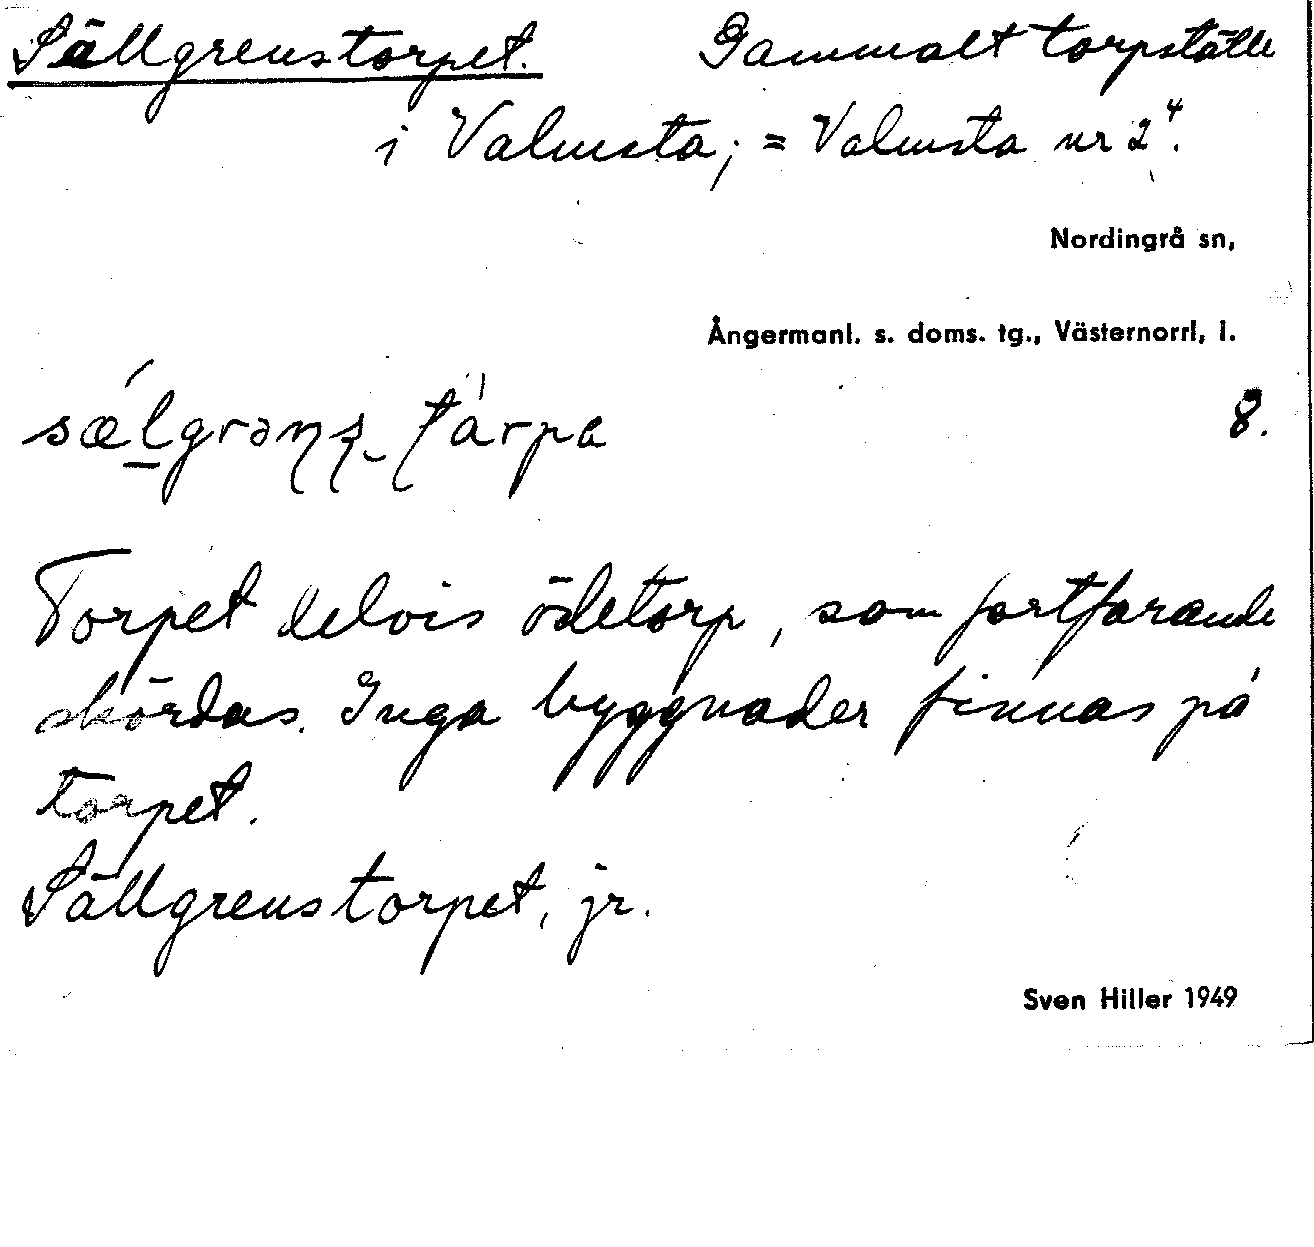 Sällgrenstorpet. Gammalt torpställe
i Valmsta; = Valmsta nr 2⁴.
Nordingrå sn,
Ångermanl. s. doms. tg., Västernorrl, l.
8.
Torpet delvis ödetorp, som fortfarande
skördas. Inga byggnader finnas på
torpet.
Sällgrenstorpet, jr.
Sven Hiller 1949